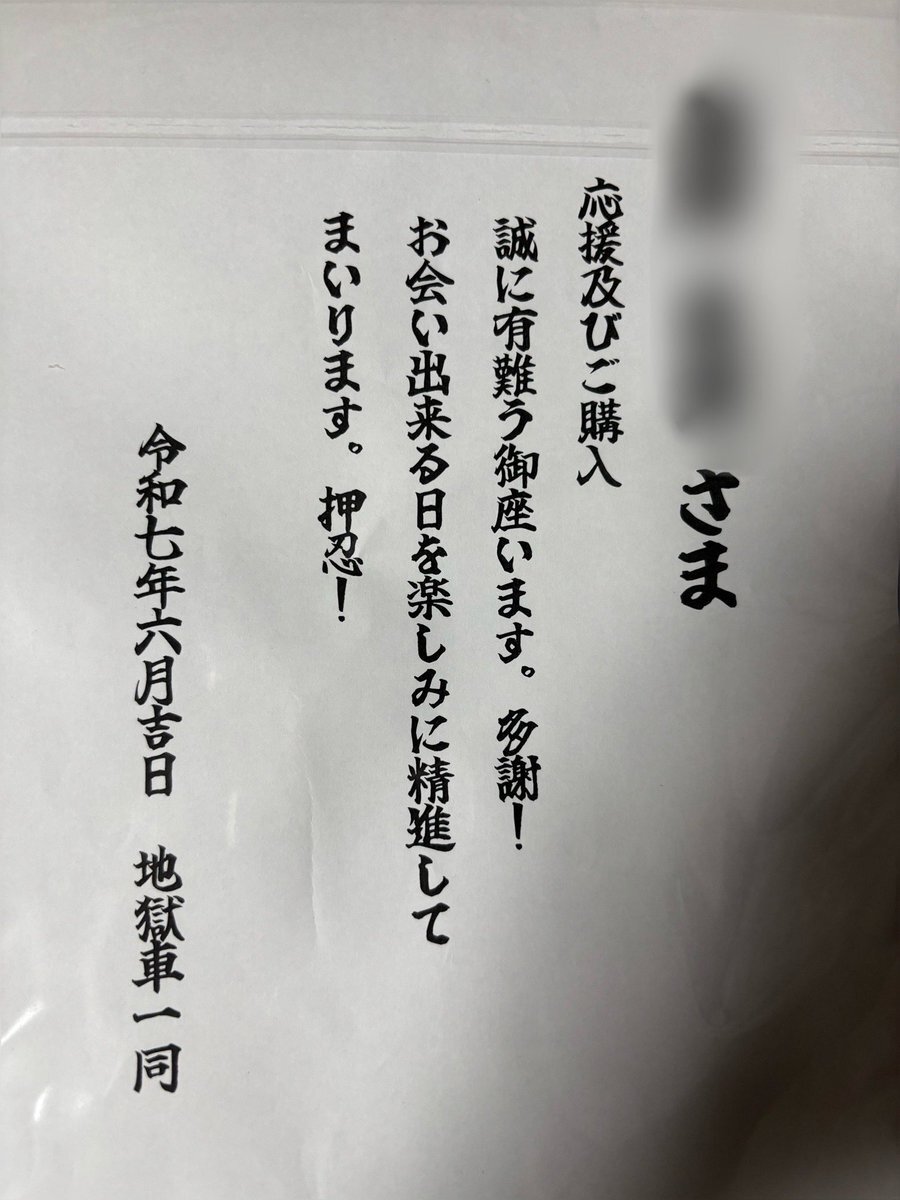 さま
応援及びご購入
誠に有難う御座います。 多謝！
お会い出来る日を楽しみに精進して
まいります。 押忍！
令和七年六月吉日 地獄車一同